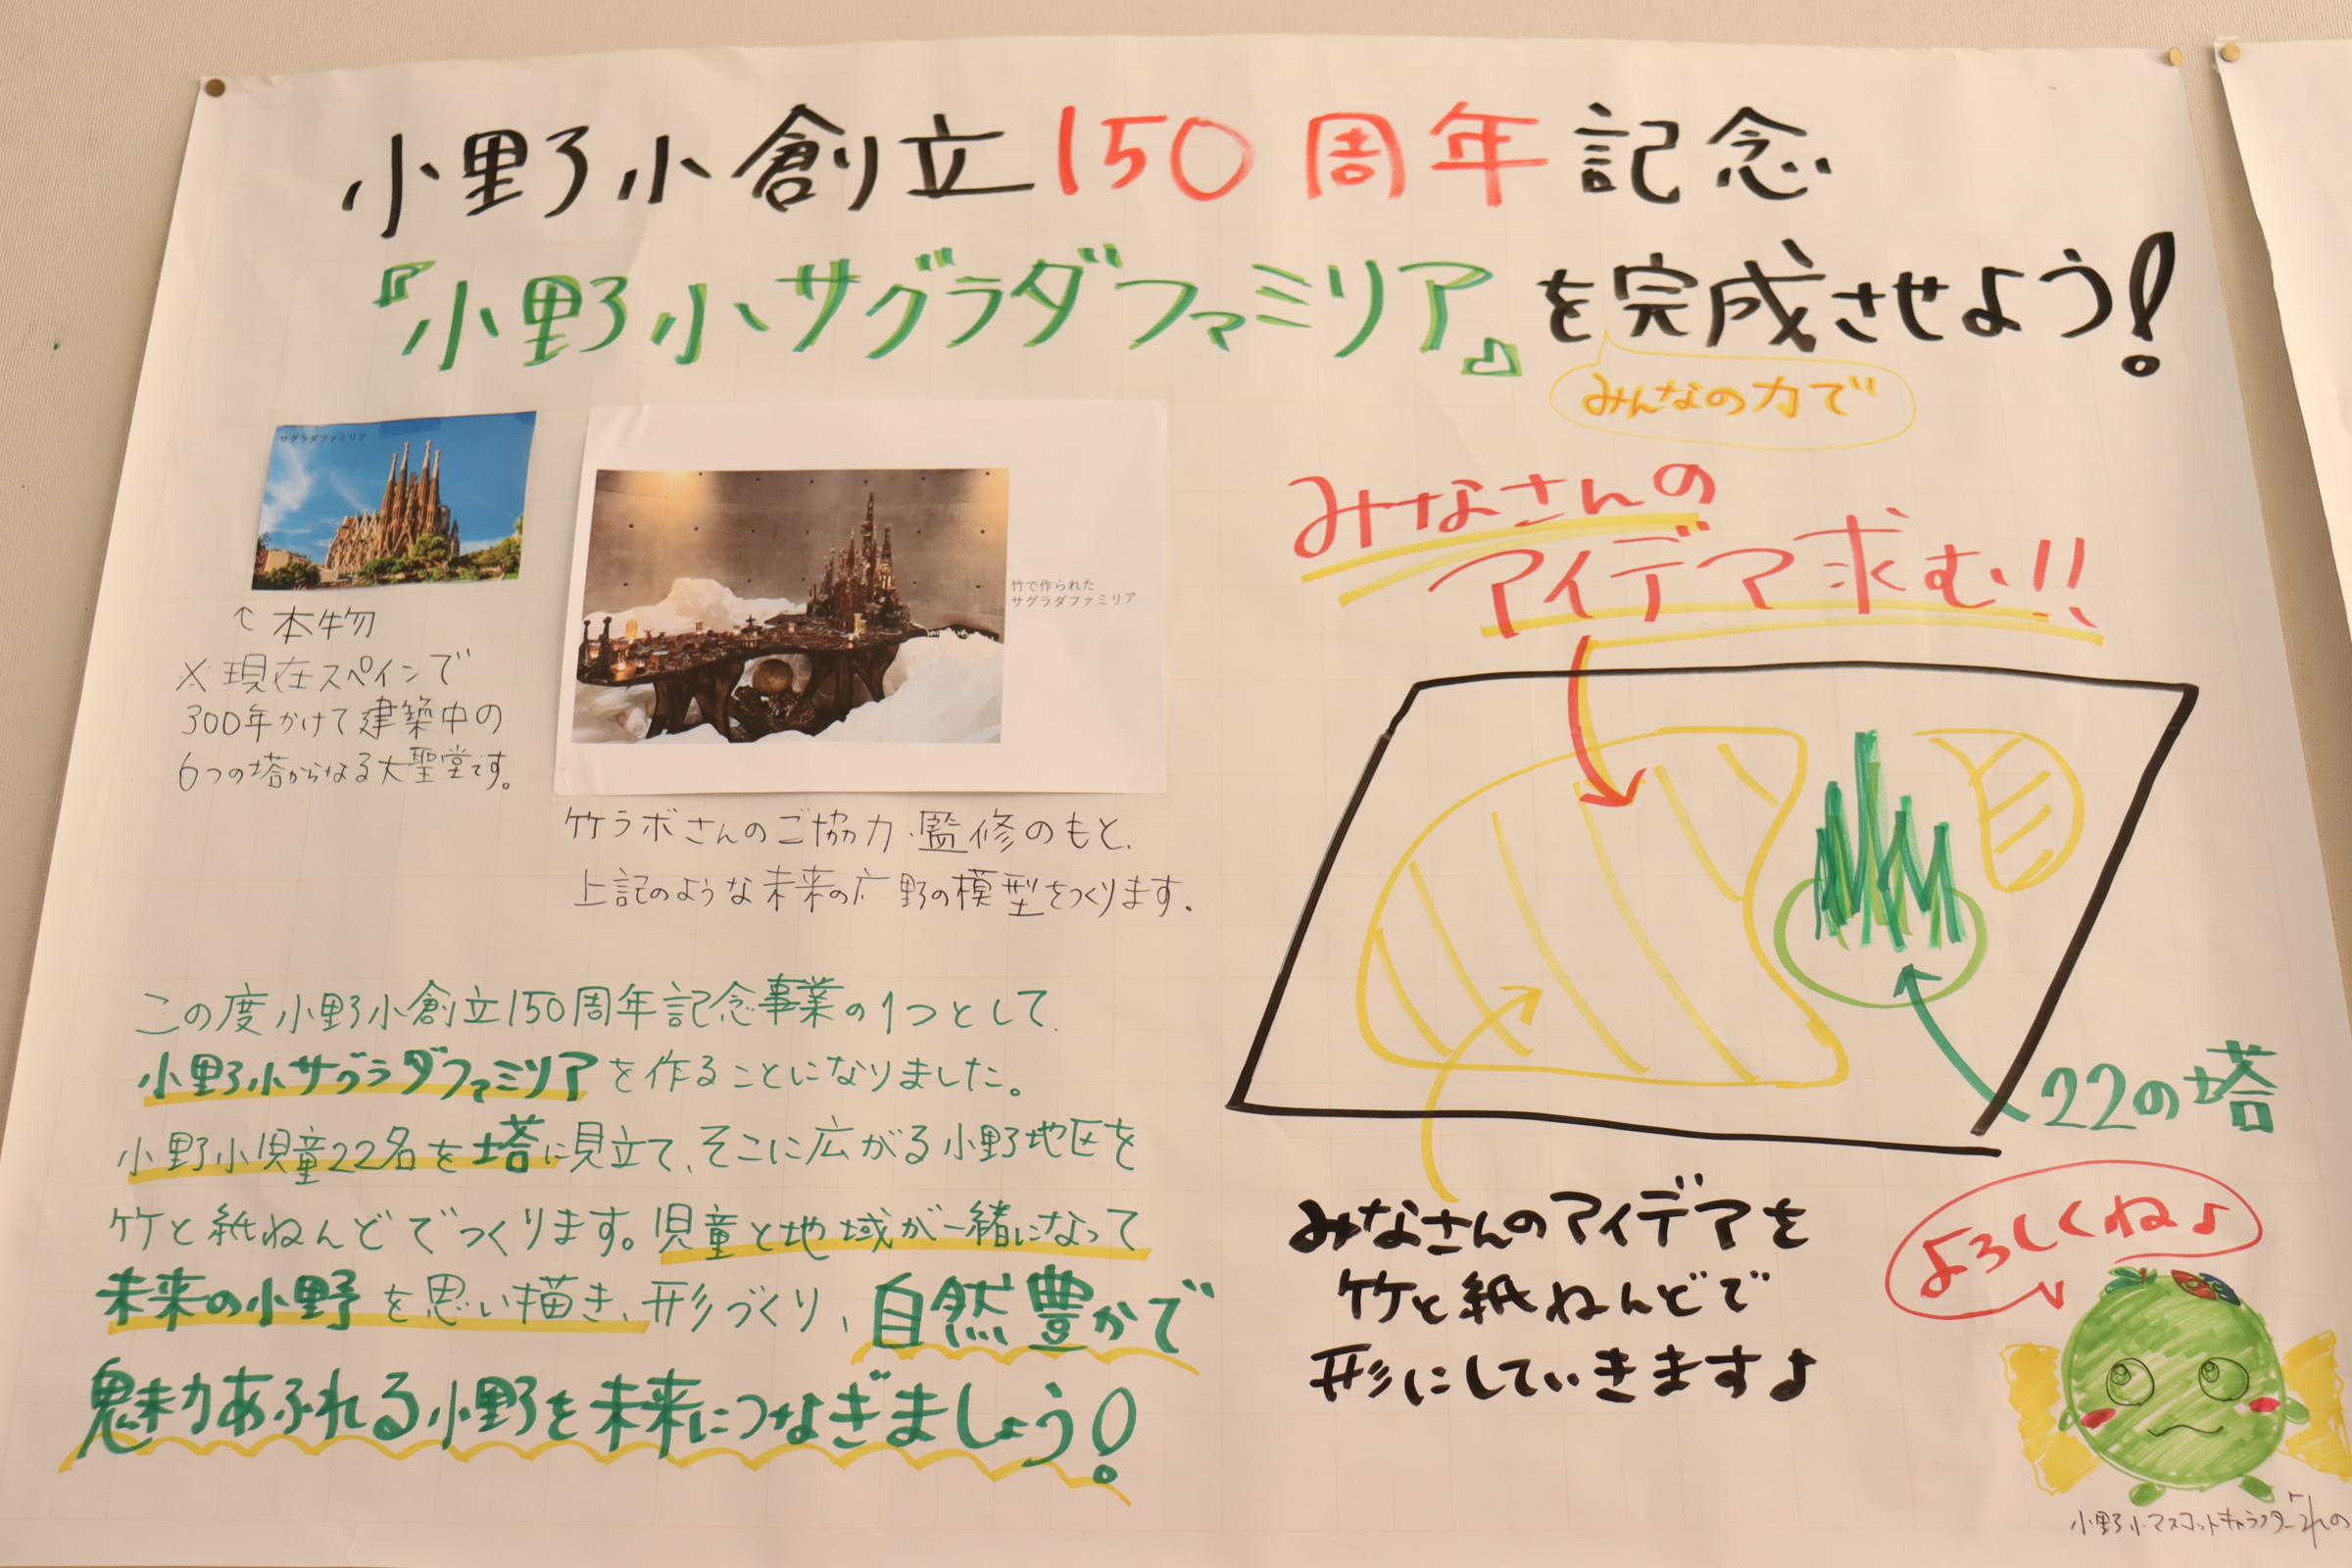 小野小創立150周年記念
『小野小サグラダファミリア』を完成させよう!
みんなの力で
サグラダファミリア
↑本物
※現在スペインで
300年かけて建築中の
6つの塔からなる大聖堂です。
竹で作られた
サグラダファミリア
竹ラボさんのご協力・監修のもと、
上記のような未来の広野の模型をつくります。
みなさんの
アイデア求む!!
22の塔
みなさんのアイデアを
竹と紙ねんどで
形にしていきます♪
この度小野小創立150周年記念事業の1つとして、
小野小サグラダファミリアを作ることになりました。
小野小児童22名を塔に見立て、そこに広がる小野地区を
竹と紙ねんどでつくります。児童と地域が一緒になって
未来の小野を思い描き、形づくり、自然豊かで
魅力あふれる小野を未来につなぎましょう!
よろしくね♪
小野小マスコットキャラクター